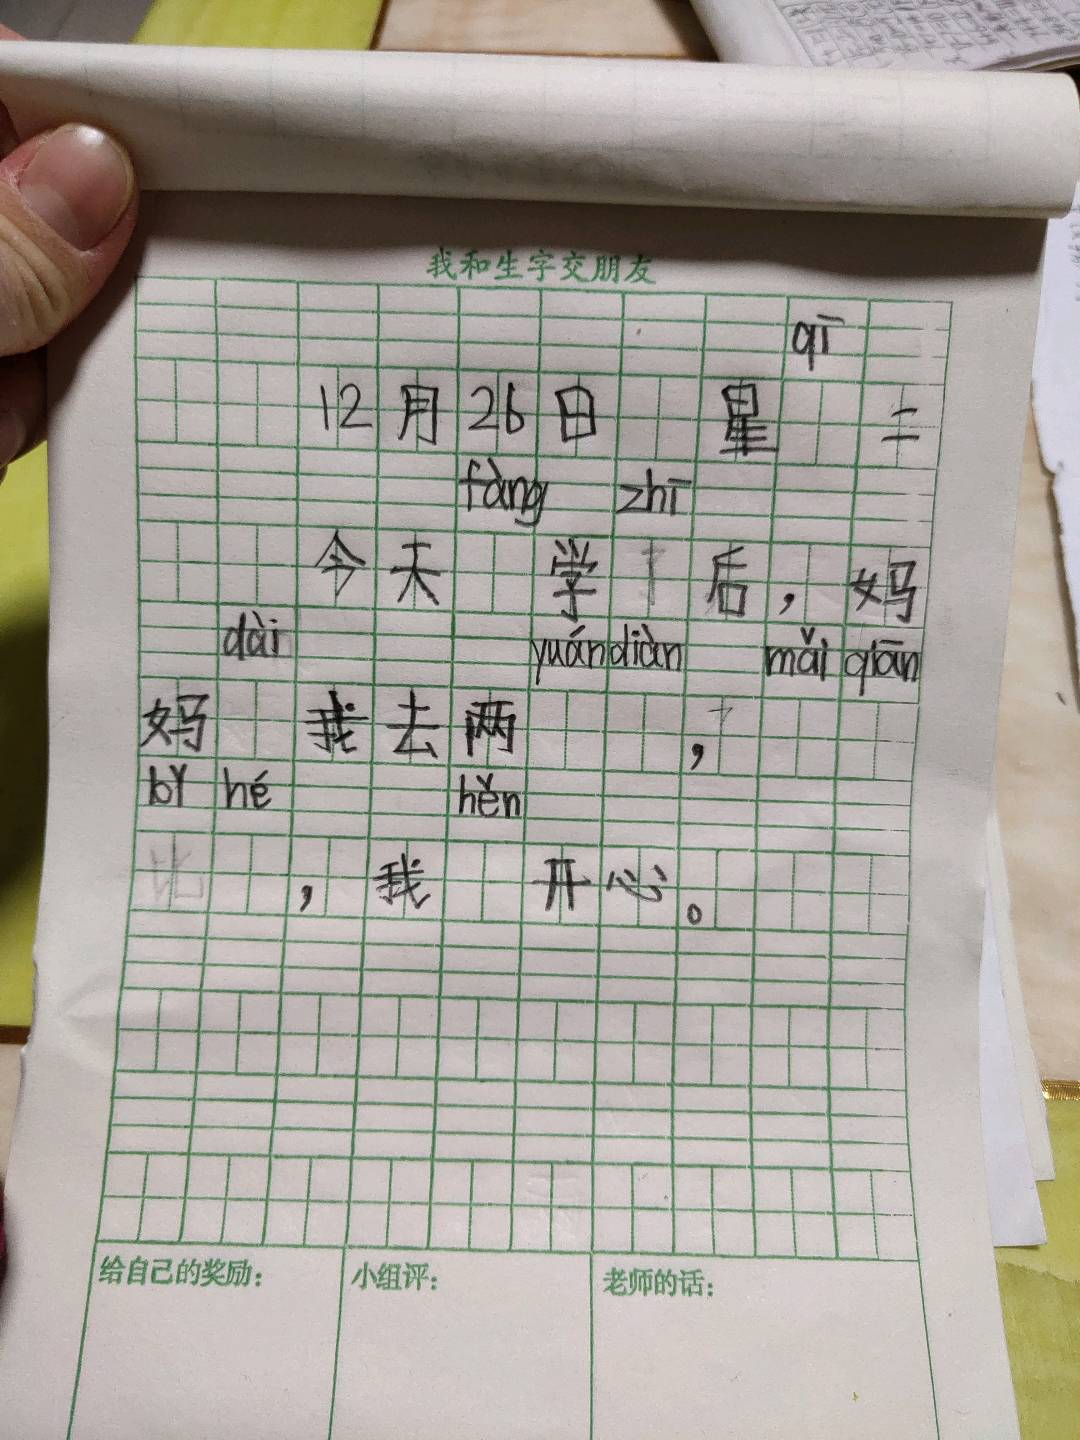 我和生字交朋友
qī
12月26日 星 二
fàng zhī
今天 学 后，妈
dài yuán diàn mǎi qiān
妈 我去两 ，
bǐ hé hěn
比 ，我 开心。
给自己的奖励： 小组评： 老师的话：